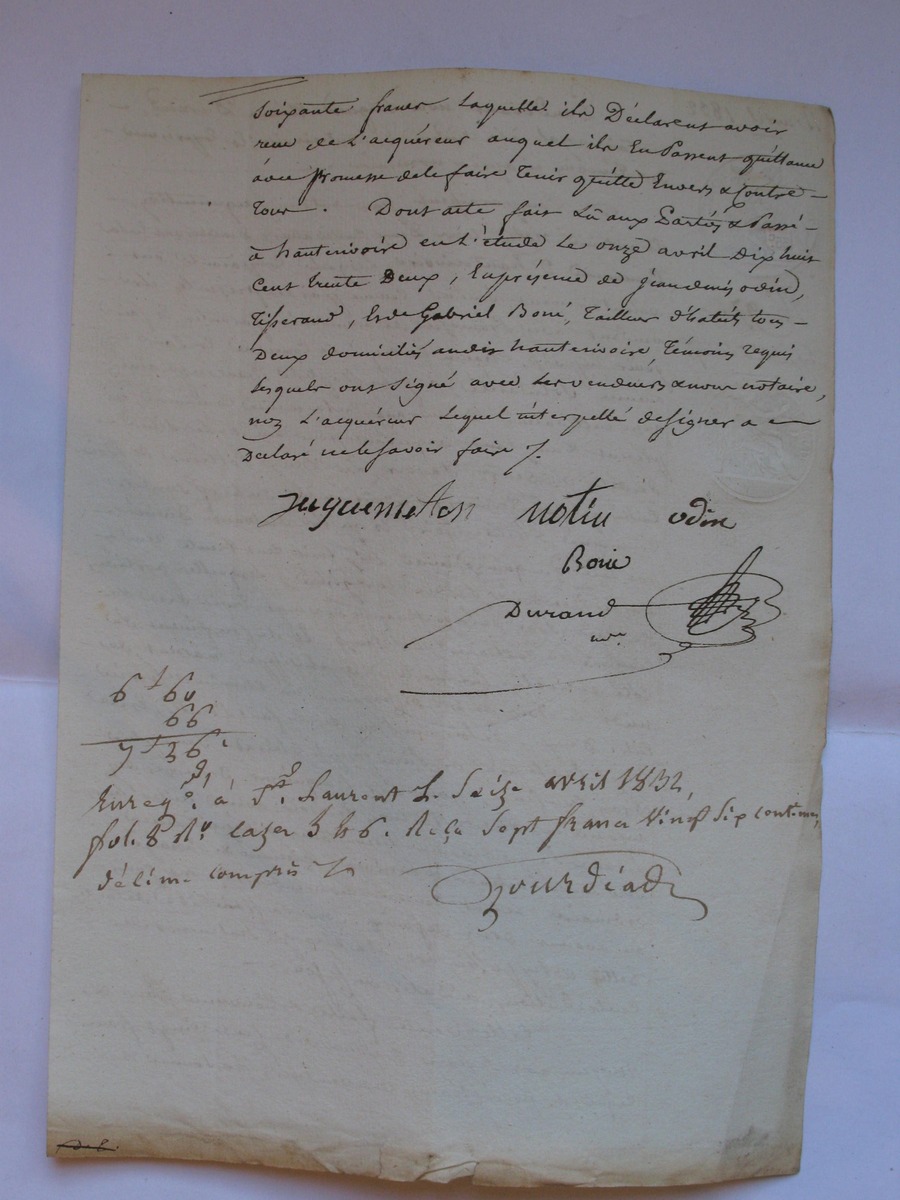 Soixante francs laquelle ils Déclarent avoir
reçu de L'acquéreur auquel ils En Passent quittance
avec Promesse de le faire Tenir quitte Envers & Contre
Tous. Dont acte fait Lû aux Parties & Passé
à hauterivoire en L'étude Le onze avril Dix huit
Cent trente Deux, En présence de jean denis odin,
Tisserand, Et de Gabriel Boné, Tailleur d'habits tous
Deux domiciliés audit hauterivoire, Témoins requis
Lesquels ont Signé avec Les vendeurs & nous notaire,
non L'acquéreur Lequel interpellé de Signer a
Déclaré ne le Savoir faire /.
odin
Boné
Durand
nre
6f 60
66
7f 26
Enregé. à St. Laurent L. Seize avril 1832,
fol. 8 Ro cazes 5 & 6. Reçu Sept francs Vingt Six centimes,
décime compris